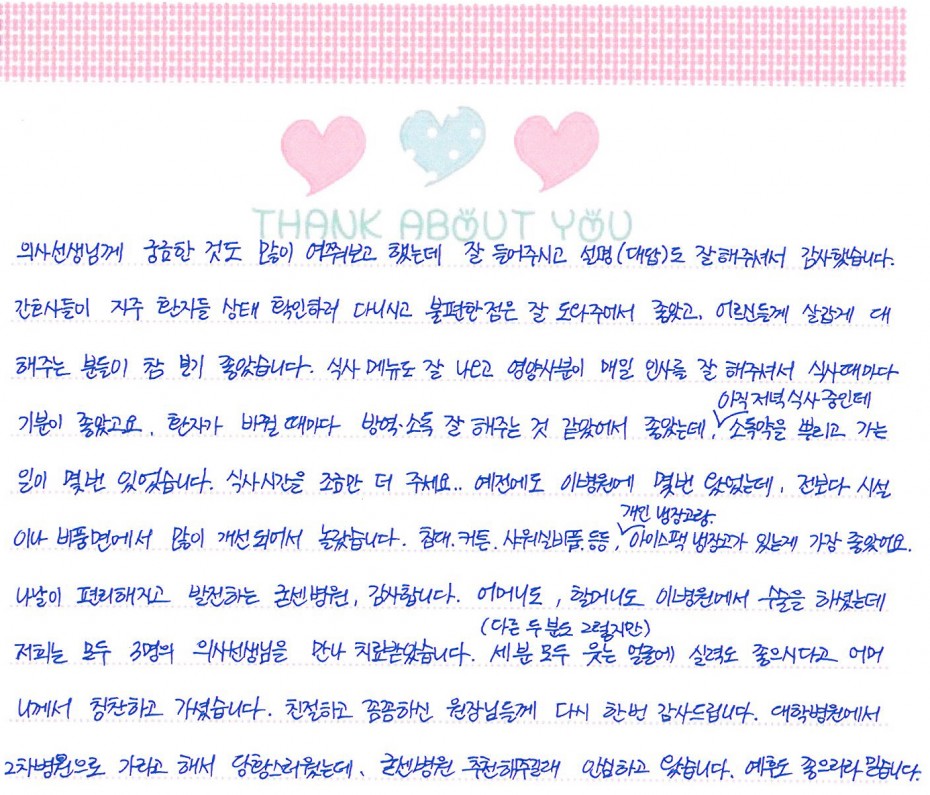 THANK ABOUT YOU
의사선생님께 궁금한 것도 많이 여쭤보고 했는데 잘 들어주시고 설명(대답)도 잘해주셔서 감사했습니다.
간호사들이 자주 환자들 상태 확인하러 다니시고 불편한점은 잘 도와주어서 좋았고, 어르신들께 살갑게 대
해주는 분들이 참 보기 좋았습니다. 식사메뉴도 잘 나오고 영양사분이 매일 인사를 잘 해주셔서 식사때마다
아직 저녁식사 중인데
기분이 좋았고요. 환자가 바뀔 때마다 방역·소독 잘 해주는 것 같았어서 좋았는데, 소독약을 뿌리고 가는
일이 몇번 있었습니다. 식사시간을 조금만 더 주세요.. 예전에도 이병원에 몇번 왔었는데, 전보다 시설
개인 냉장고랑
이나 비품면에서 많이 개선되어서 놀랐습니다. 침대.커튼.샤워실비품.등등, 아이스팩 냉장고가 있는게 가장 좋았어요.
나날이 편리해지고 발전하는 굳센병원, 감사합니다. 어머니도, 할머니도 이병원에서 수술을 하셨는데
(다른 두분도 그렇지만)
저희는 모두 3명의 의사선생님을 만나 치료받았습니다. 세분 모두 웃는 얼굴에 실력도 좋으시다고 어머
니께서 칭찬하고 가셨습니다. 친절하고 꼼꼼하신 원장님들께 다시 한번 감사드립니다. 대학병원에서
2차병원으로 가라고 해서 당황스러웠는데, 굳센병원 추천해주길래 안심하고 왔습니다. 예후도 좋으리라 믿습니다.